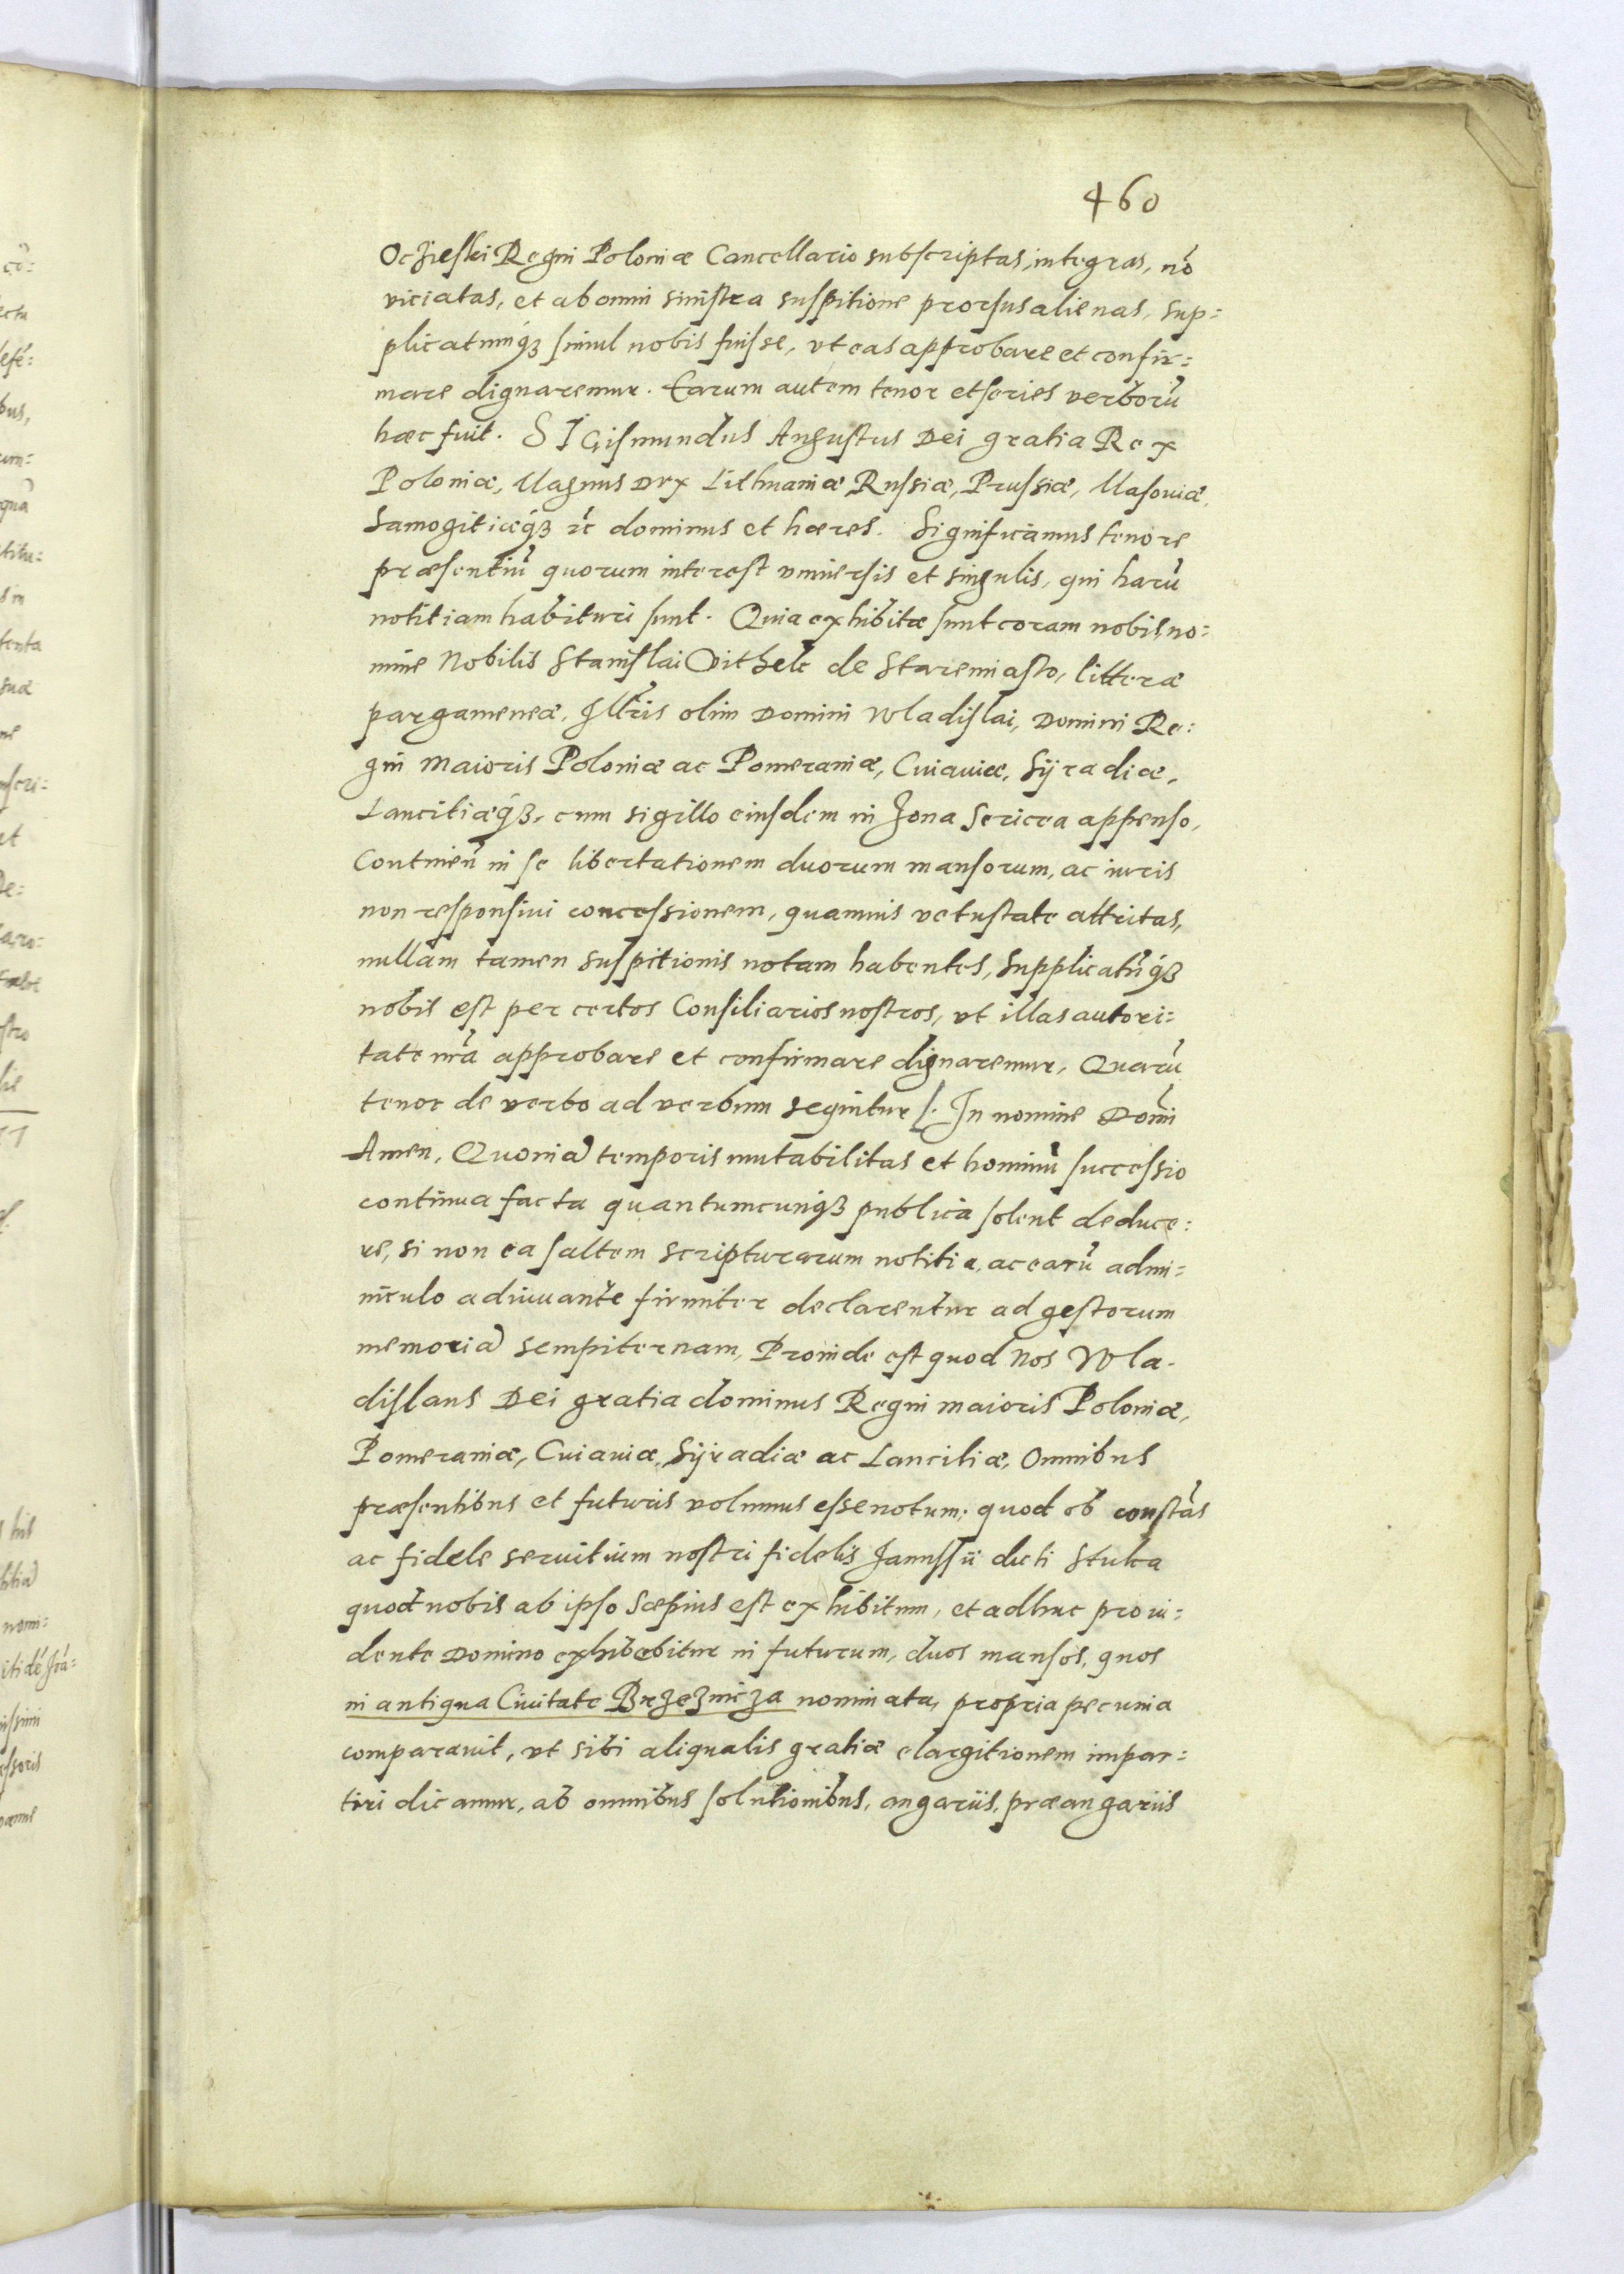 460
Ocʒieſki Regni Poloniæ Cancellario subscriptas, integras, nō
viciatas, et ab omni sinistra suſpitione prorſus alienas, sup=
plicatumq́ʒ ſimul nobis fuiſse, vt eas approbare et confir=
mare dignaremur. Earum autem tenor et ſeries verborū
hæc fuit. SIGiſmundus Auguſtus Dei gratia Rex
Poloniæ, Magnus Dux Lithuaniæ, Ruſsiæ, Pruſsiæ, Maſouiæ,
Samogitiæq́ʒ ꝛc dominus et hæres. Significamus tenore
præſentiū quorum intereſt vniuerſis et singulis, qui harū
notitiam habituri ſunt. Quia exhibitæ ſunt coram nobis no=
mine Nobilis Staniſlai Oithek de Staremiaſto, litteræ
pargameneæ, Illr̃is olim Domini Wladiſlai, Domini Re=
gni maioris Poloniæ ac Pomeraniæ, Cuiauiæ, Sÿradiæ,
Lancitiæq́ʒ, cum sigillo eiuſdem in ʒona Sericea appenso,
Continen̄ in ſe libertationem duorum manſorum, ac iuris
non reſponſiui conceſsionem, quamuis vetuſtate attritas,
nullam tamen suſpitionis notam habentes, Supplicatūq́ʒ
nobis eſt per certos Conſiliarios noſtros, vt illas autori=
tate nr̃a approbare et confirmare dignaremur, Quarū
tenor de verbo ad verbum sequitur [. In nomine Domī
Amen, Quoniā temporis mutabilitas et hominū ſucceſsio
continua facta quantumcunq́ʒ publica ſolent deduce=
re, si non ea ſaltem scripturarum notitia, ac earū admi=
niculo adiuuante firmiter declarentur ad geſtorum
memoriā sempiternam, Proinde eſt quod Nos Wla-
diſlaus Dei gratia dominus Regni maioris Poloniæ,
Pomeraniæ, Cuiauiæ, Sÿradiæ ac Lancitiæ, Omnibus
præſentibus et futuris volumus eſse notum, quod ob conſtās
ac fidele seruitium noſtri fidelis Januſſii dicti Stulca
quod nobis ab ipſo Sæpius eſt exhibitum, et adhuc proui=
dente Domino exhibebitur in futurum, duos manſos, quos
in antiqua Ciuitate Brzeʒnicʒa nominata, propria pecunia
comparauit, vt sibi aliqualis gratiæ elargitionem impar=
tiri dicamur, ab omnibus ſolutionibus, angariis, præangariis